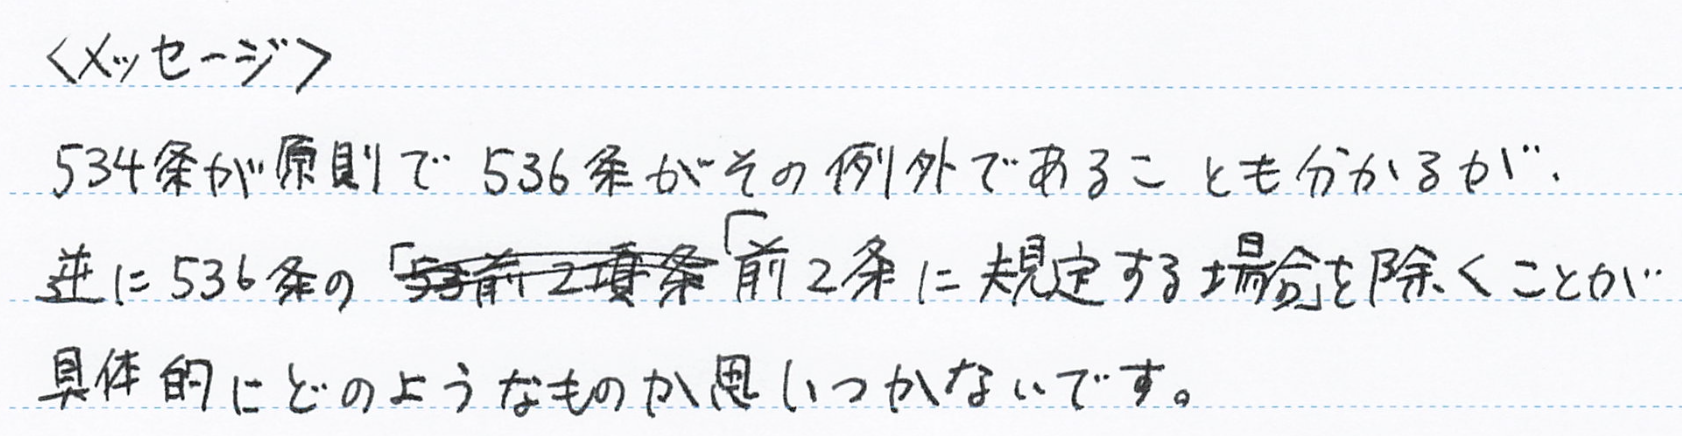 <メッセージ>
534条が原則で536条がその例外であることも分かるが、
逆に536条の「前2条に規定する場合」を除くことが
具体的にどのようなものか思いつかないです。